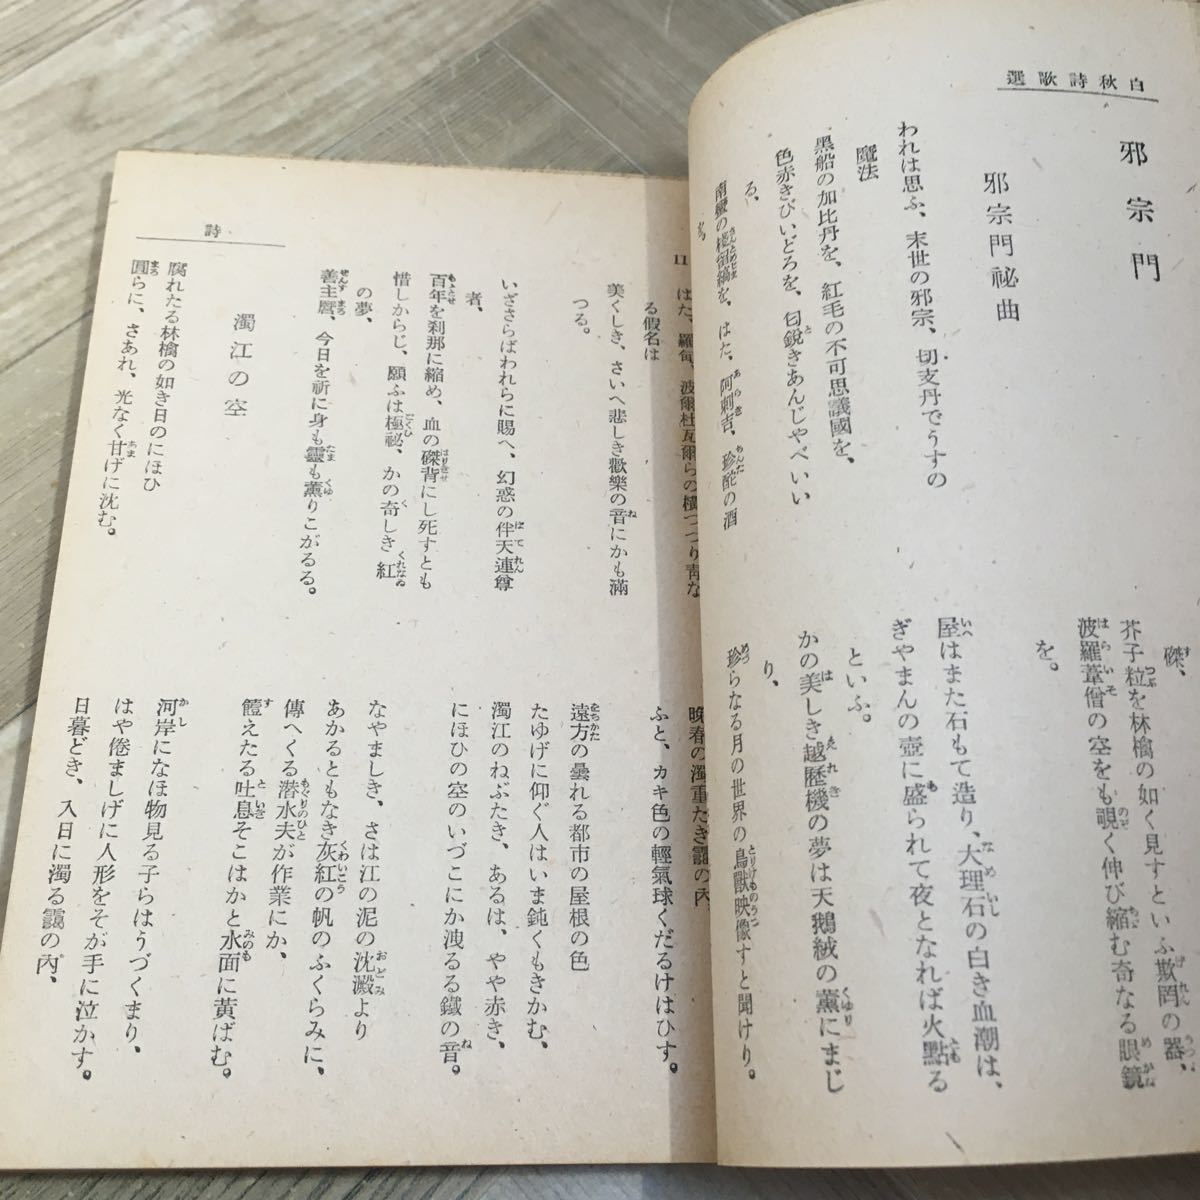 白秋詩歌選
邪宗門
邪宗門祕曲
われは思ふ、末世の邪宗、切支丹でうすの
魔法
黑船の加比丹を、紅毛の不可思議國を、
色赤きびいどろを、匂鋭きあんじやべいい
る、
南蠻の棧留縞を、はた、阿刺吉、珍酡の酒
を。
磔、
芥子粒を林檎の如く見すといふ欺罔の器、
波羅葦僧の空をも覗く伸び縮む奇なる眼鏡
を。
屋はまた石もて造り、大理石の白き血潮は、
ぎやまんの壺に盛られて夜となれば火點る
といふ。
かの美しき越歷機の夢は天鵝絨の薰にまじ
り、
珍らなる月の世界の鳥獸映像すと聞けり。
11
詩
はた、羅甸、波爾杜瓦爾らの橫つづり靑な
る假名は
美くしき、さいへ悲しき歡樂の音にかも滿
つる。
いざさらばわれらに賜へ、幻惑の伴天連尊
者、
百年を刹那に縮め、血の磔背にし死すとも
惜しからじ、願ふは極祕、かの奇しき紅
の夢、
善主麿、今日を祈に身も靈も薰りこがるる。
濁江の空
腐れたる林檎の如き日のにほひ
圓らに、さあれ、光なく甘げに沈む。
晩春の濁重たき靄の內、
ふと、カキ色の輕氣球くだるけはひす。
遠方の曇れる都市の屋根の色
たゆげに仰ぐ人はいま鈍くもきかむ、
濁江のねぶたき、あるは、やや赤き、
にほひの空のいづこにか洩るる鐵の音。
なやましき、さは江の泥の沈澱より
あかるともなき灰紅の帆のふくらみに、
傳へくる潜水夫が作業にか、
饐えたる吐息そこはかと水面に黃ばむ。
河岸になほ物見る子らはうづくまり、
はや倦ましげに人形をそが手に泣かす。
日暮どき、入日に濁る靄の內、